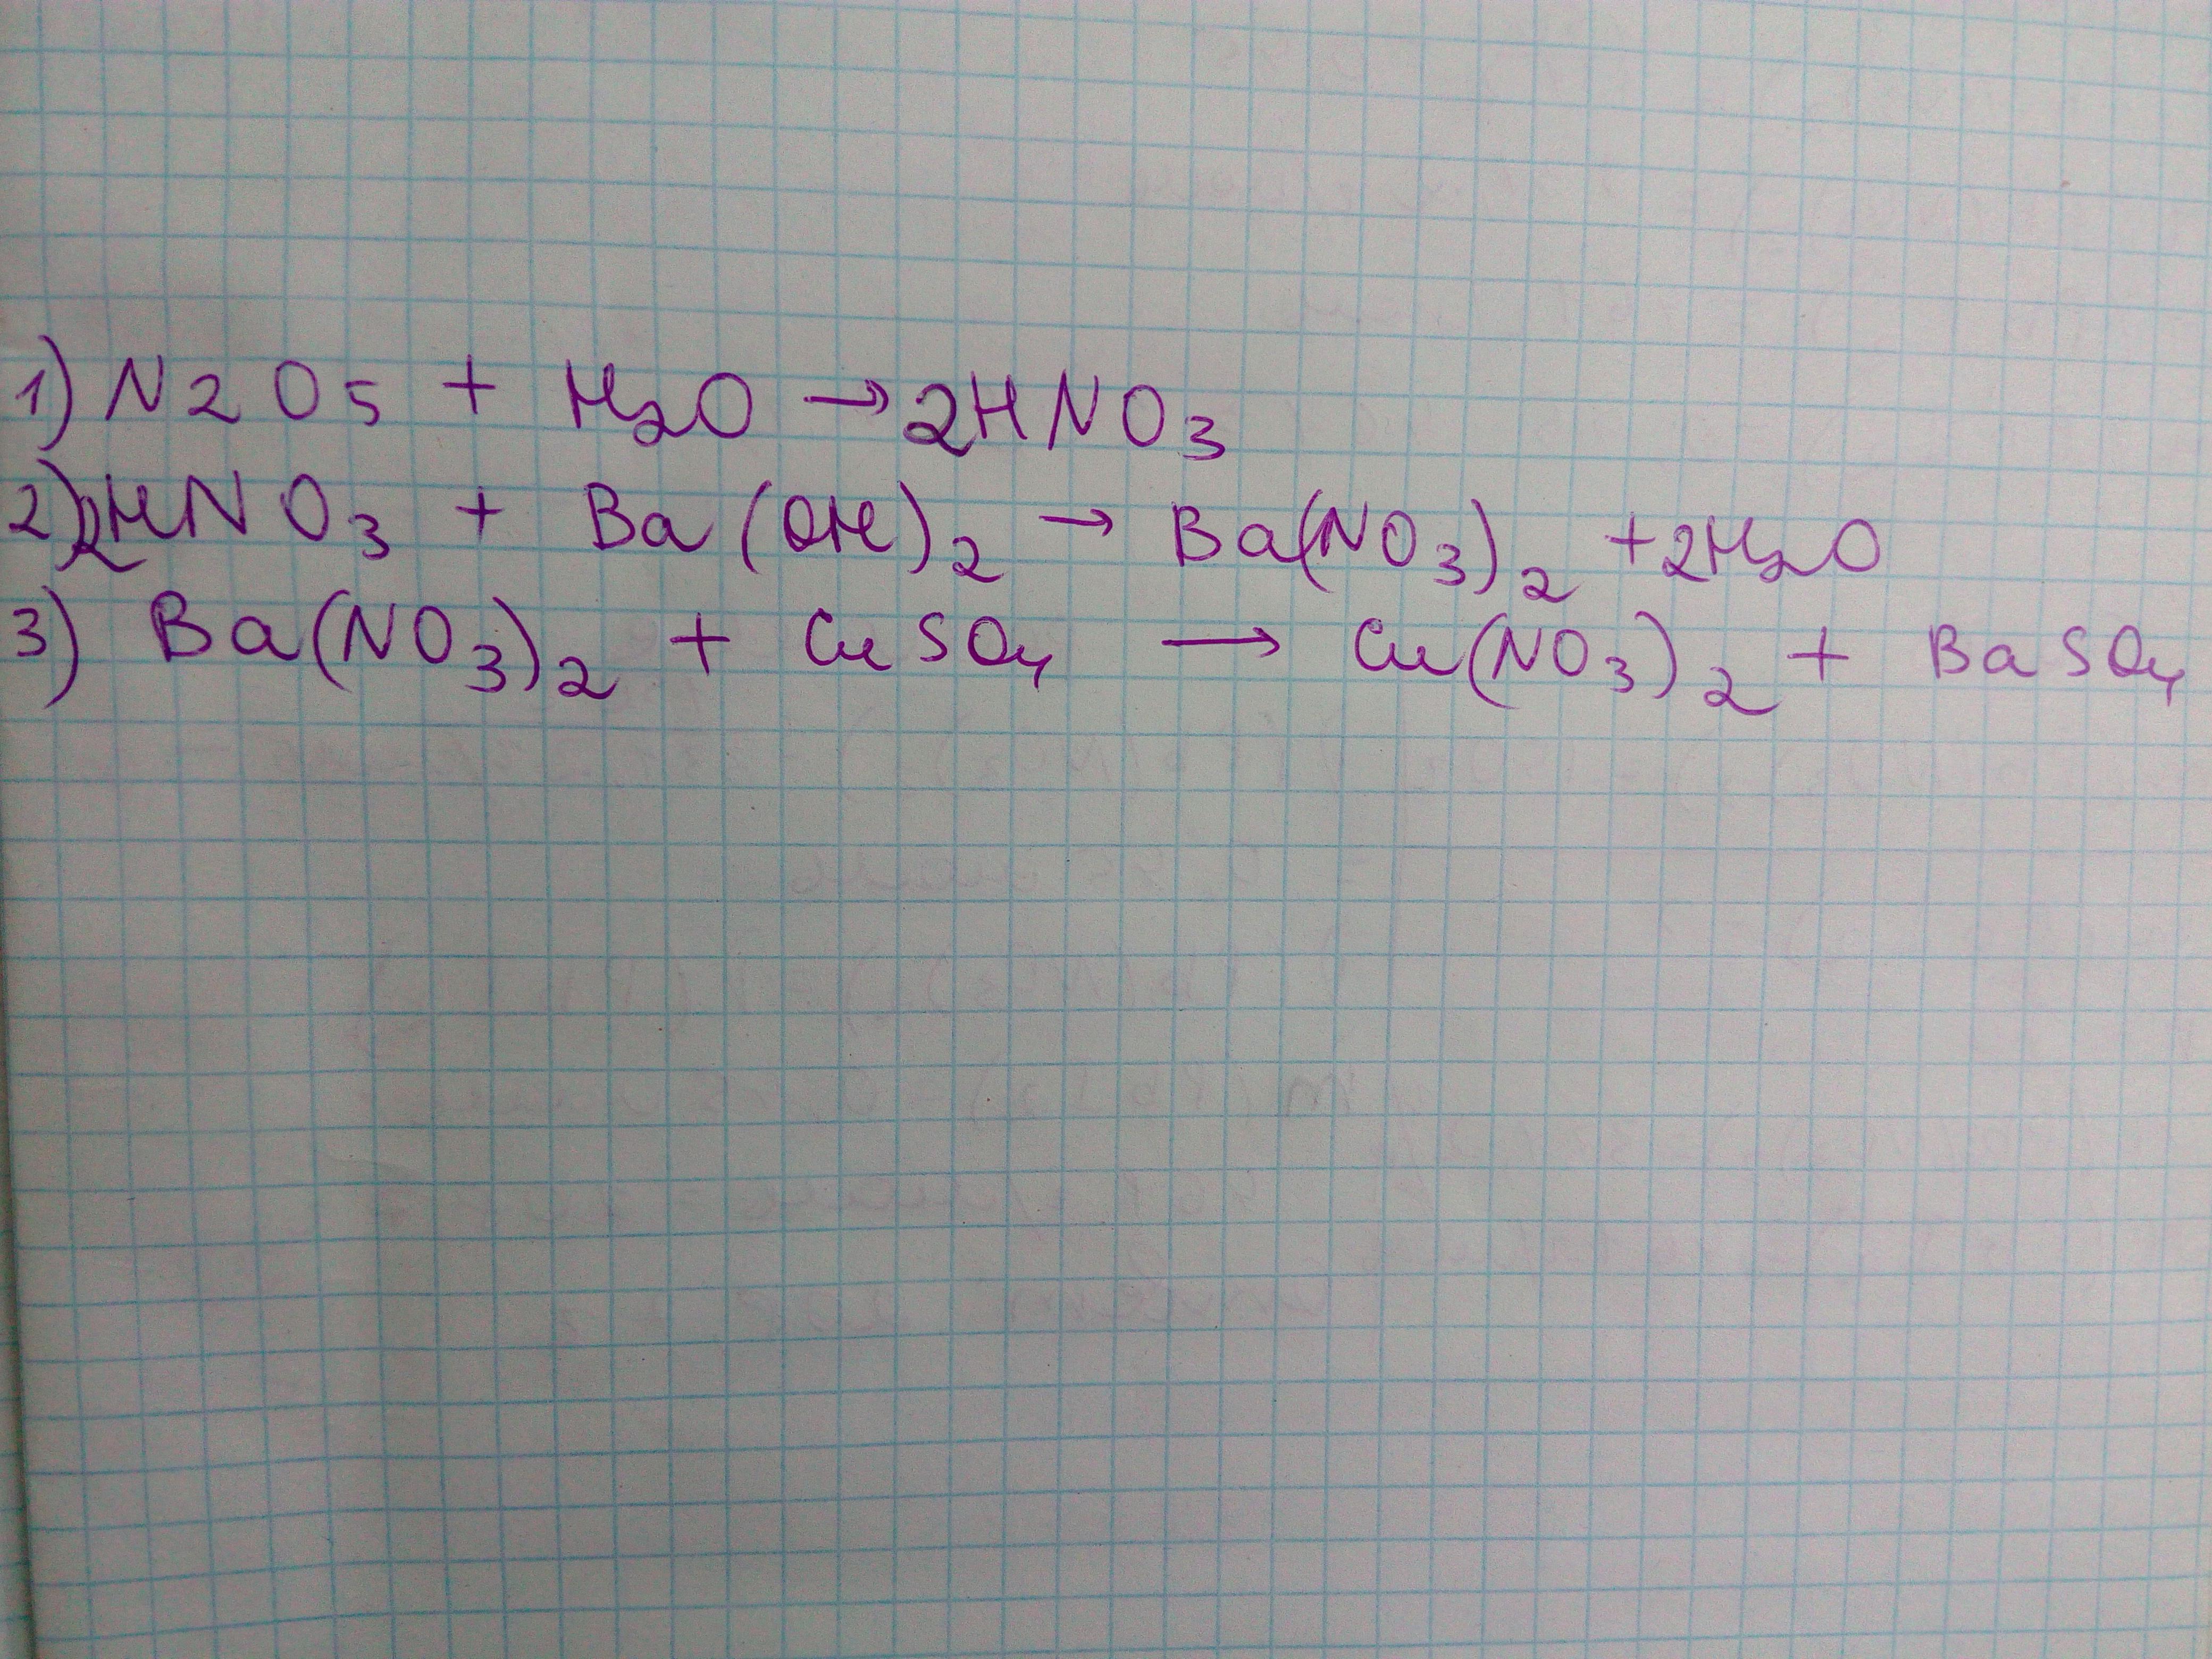 1) N2O5 + H₂O → 2HNO₃
2) 2HNO₃ + Ba(OH)₂ → Ba(NO₃)₂ + 2H₂O
3) Ba(NO₃)₂ + CuSO₄ → Cu(NO₃)₂ + BaSO₄